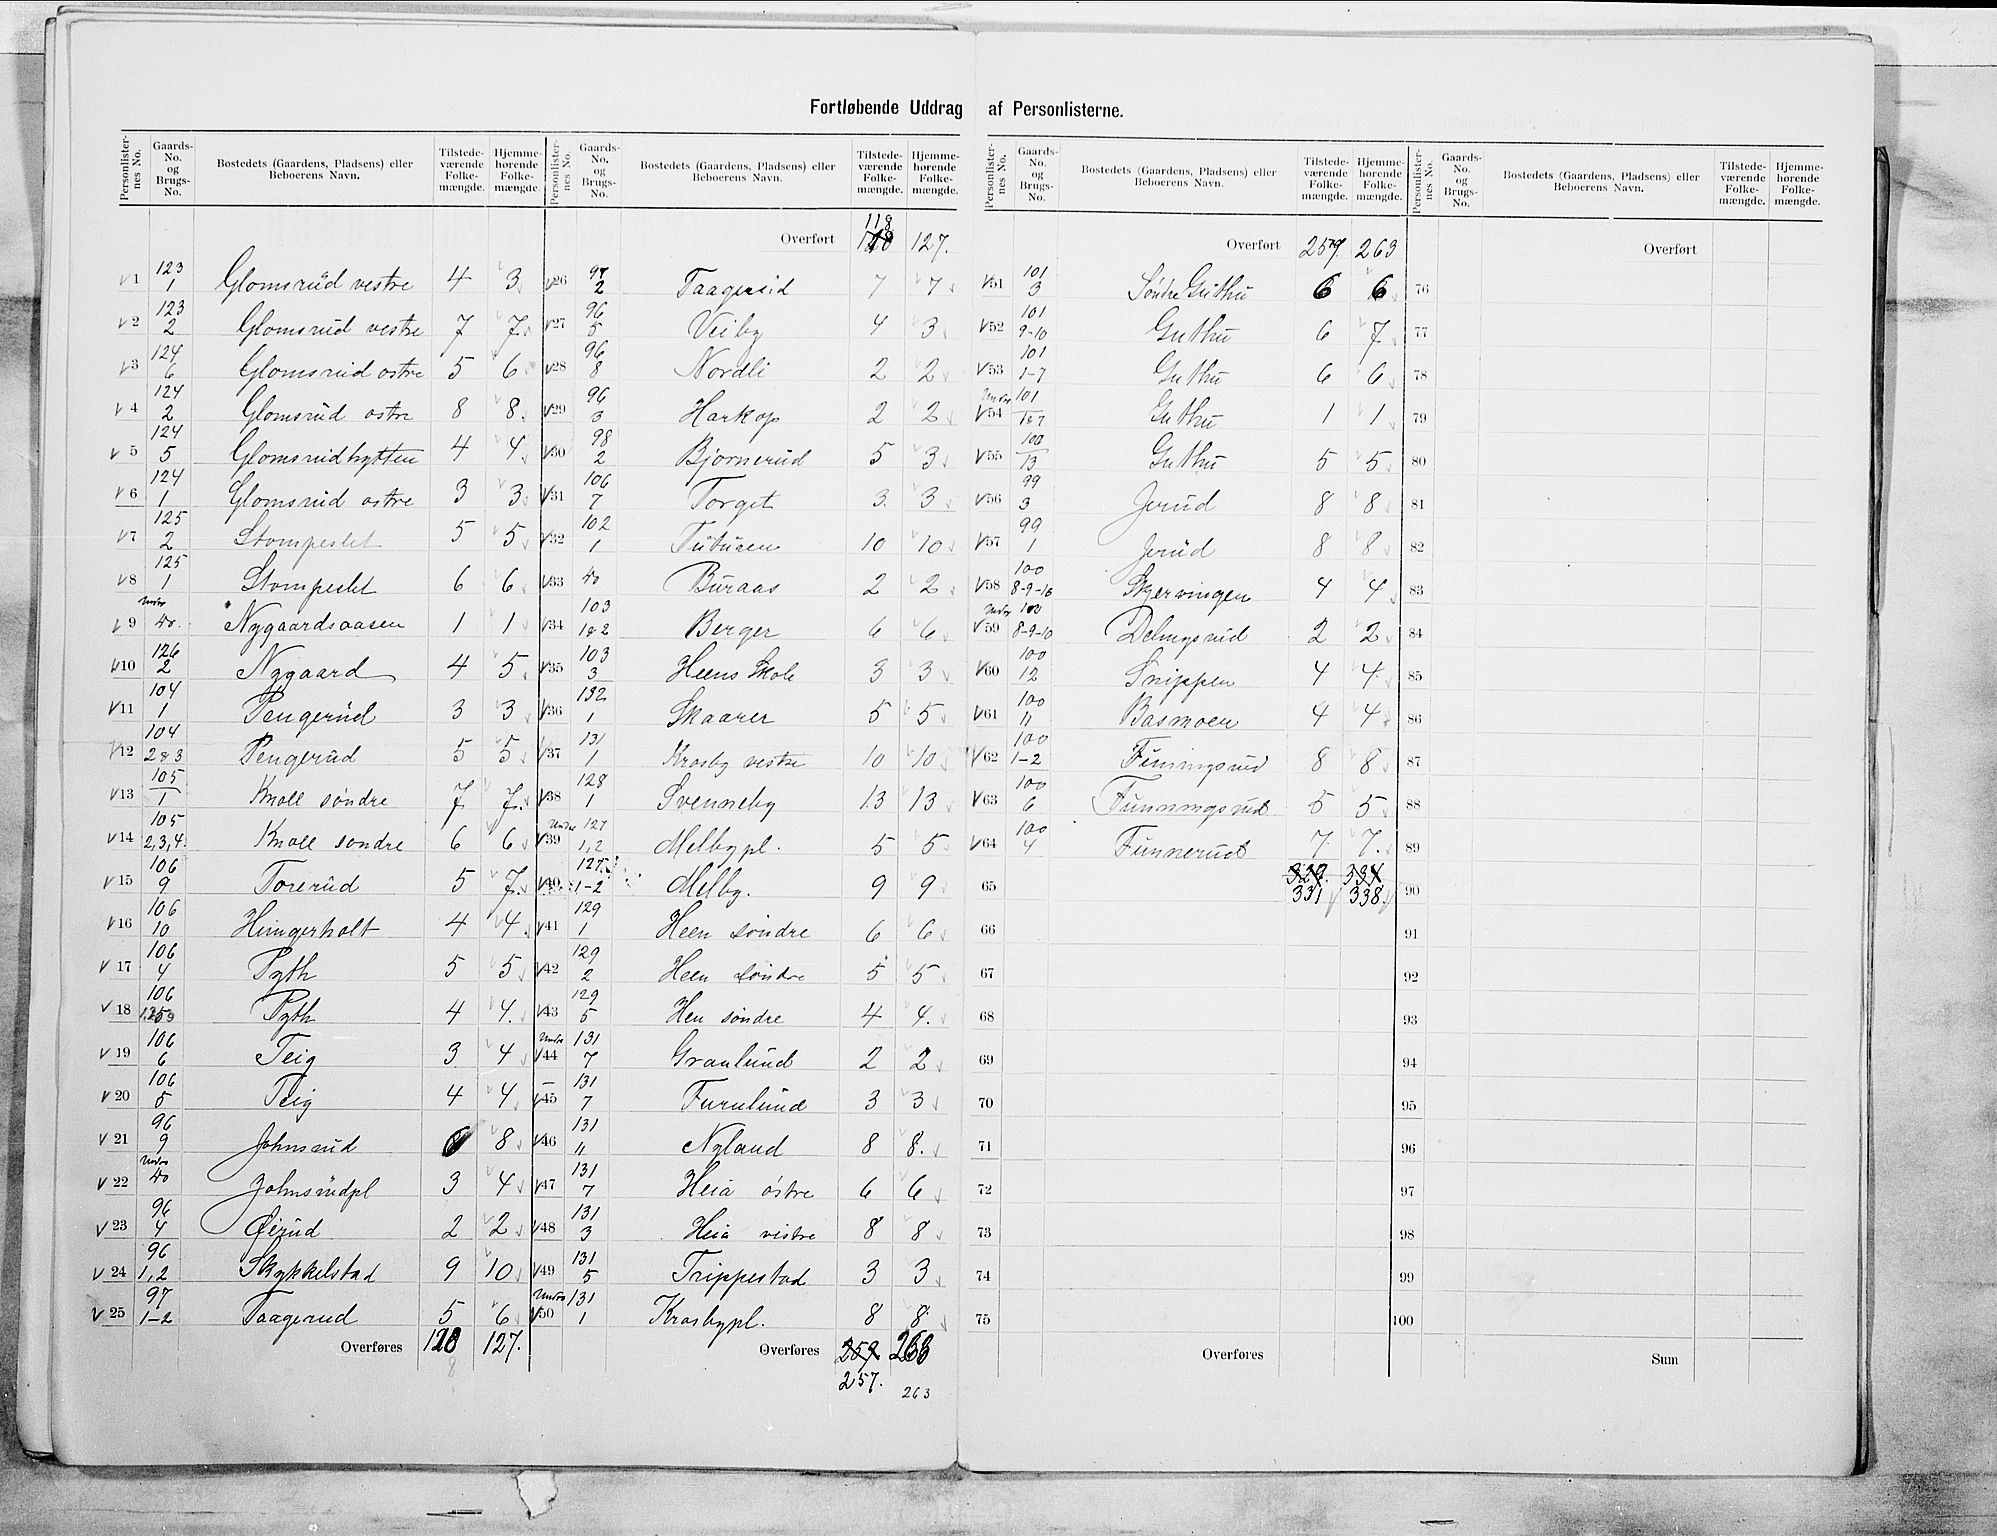 Fortløbende Uddrag af Personlisterne.
Personlister-nes No. | Gaards-No. og Brugs-No. | Bostedets (Gaardens, Pladsens) eller Beboerens Navn. | Tilstede-værende Folke-mængde. | Hjemme-hørende Folke-mængde.
1 | 123 1 | Glomsrud vestre | 4 | 3
2 | 123 2 | Glomsrud vestre | 7 | 7
3 | 124 6 | Glomsrud østre | 5 | 6
4 | 124 2 | Glomsrud østre | 8 | 8
5 | 124 5 | Glomsrudhytten | 4 | 4
6 | 124 1 | Glomsrud østre | 3 | 3
7 | 125 2 | Stompeslet | 5 | 5
8 | 125 1 | Stompeslet | 6 | 6
9 | Under do. | Nygaardsaasen | 1 | 1
10 | 126 2 | Nygaard | 4 | 5
11 | 104 1 | Pengerud | 3 | 3
12 | 104 2&3 | Pengerud | 5 | 5
13 | 105 1 | Knoll søndre | 7 | 7
14 | 105 2,3,4. | Knoll søndre | 6 | 6
15 | 106 9 | Torerud | 5 | 7
16 | 106 10 | Hungerholt | 4 | 4
17 | 106 4 | Pyth | 5 | 5
18 | 106 | Pyth | 4 | 4
19 | 106 6 | Teig | 3 | 4
20 | 106 5 | Teig | 4 | 4
21 | 96 9 | Johnsrud | 6 | 8
22 | Under do | Johnsrudpl | 3 | 4
23 | 96 4 | Øirud | 2 | 2
24 | 96 1,2 | Skykkelstad | 9 | 10
25 | 97 1-2 | Taagerud | 5 | 6
Overføres | 118 | 127.
8
Personlister-nes No. | Gaards-No. og Brugs-No. | Bostedets (Gaardens, Pladsens) eller Beboerens Navn. | Tilstede-værende Folke-mængde. | Hjemme-hørende Folke-mængde.
118
Overført | 127.
26 | 97 2 | Taagerud | 7 | 7
27 | 96 5 | Veiby | 4 | 3
28 | 96 8 | Nordli | 2 | 2
29 | 96 3 | Harkop | 2 | 2
30 | 98 2 | Bjørnerud | 5 | 3
31 | 106 7 | Torget | 3 | 3
32 | 102 1 | Tuturen | 10 | 10
33 | do | Buraas | 2 | 2
34 | 103 1&2 | Berger | 6 | 6
35 | 103 3 | Heens Skole | 3 | 3
36 | 132 1 | Skaarer | 5 | 5
37 | 131 1 | Krosby vestre | 10 | 10
38 | 128 1 | Svenneby | 13 | 13
39 | Under 127 1,2 | Melbypl. | 5 | 5
40 | 127 1-2 | Melby. | 9 | 9
41 | 129 1 | Heen søndre | 6 | 6
42 | 129 2 | Heen søndre | 5 | 5
43 | 129 5 | Hen søndre | 4 | 4
44 | Under 131 7 | Granlund | 2 | 2
45 | — 131 7 | Furulund | 3 | 3
46 | 131 11 | Nyland | 8 | 8
47 | 131 7 | Heia østre | 6 | 6
48 | 131 3 | Heia vestre | 8 | 8
49 | 131 5 | Trippestad | 3 | 3
50 | Under 131 1 | Krosbypl. | 8 | 8
Overføres | 259. | 263
257. | 263
Personlister-nes No. | Gaards-No. og Brugs-No. | Bostedets (Gaardens, Pladsens) eller Beboerens Navn. | Tilstede-værende Folke-mængde. | Hjemme-hørende Folke-mængde.
Overført | 257. | 263
51 | 101 3 | Søndre Guthu | 6 | 6
52 | 101 9-10 | Guthu | 6 | 7
53 | 101 1-7 | Guthu | 6 | 6
54 | Under 101 1&7 | Guthu | 1 | 1
55 | 100 13 | Guthu | 5 | 5
56 | 99 3 | Jerud | 8 | 8
57 | 99 1 | Jerud | 8 | 8
58 | 100 8-9-10 | Skjervingen | 4 | 4
59 | Under 100 8-9-10 | 2 | 2
60 | 100 12 | Snippen | 4 | 4
61 | 100 11 | Basmoen | 4 | 4
62 | 100 1-2 | Funningsrud | 8 | 8
63 | 100 6 | Funningsrud | 5 | 5
64 | 100 4 | Funnerud | 7. | 7.
65 | 329. | 334
331 | 338
66
67
68
69
70
71
72
73
74
75
Overføres
Personlister-nes No. | Gaards-No. og Brugs-No. | Bostedets (Gaardens, Pladsens) eller Beboerens Navn. | Tilstede-værende Folke-mængde. | Hjemme-hørende Folke-mængde.
Overført
76
77
78
79
80
81
82
83
84
85
86
87
88
89
90
91
92
93
94
95
96
97
98
99
100
Sum